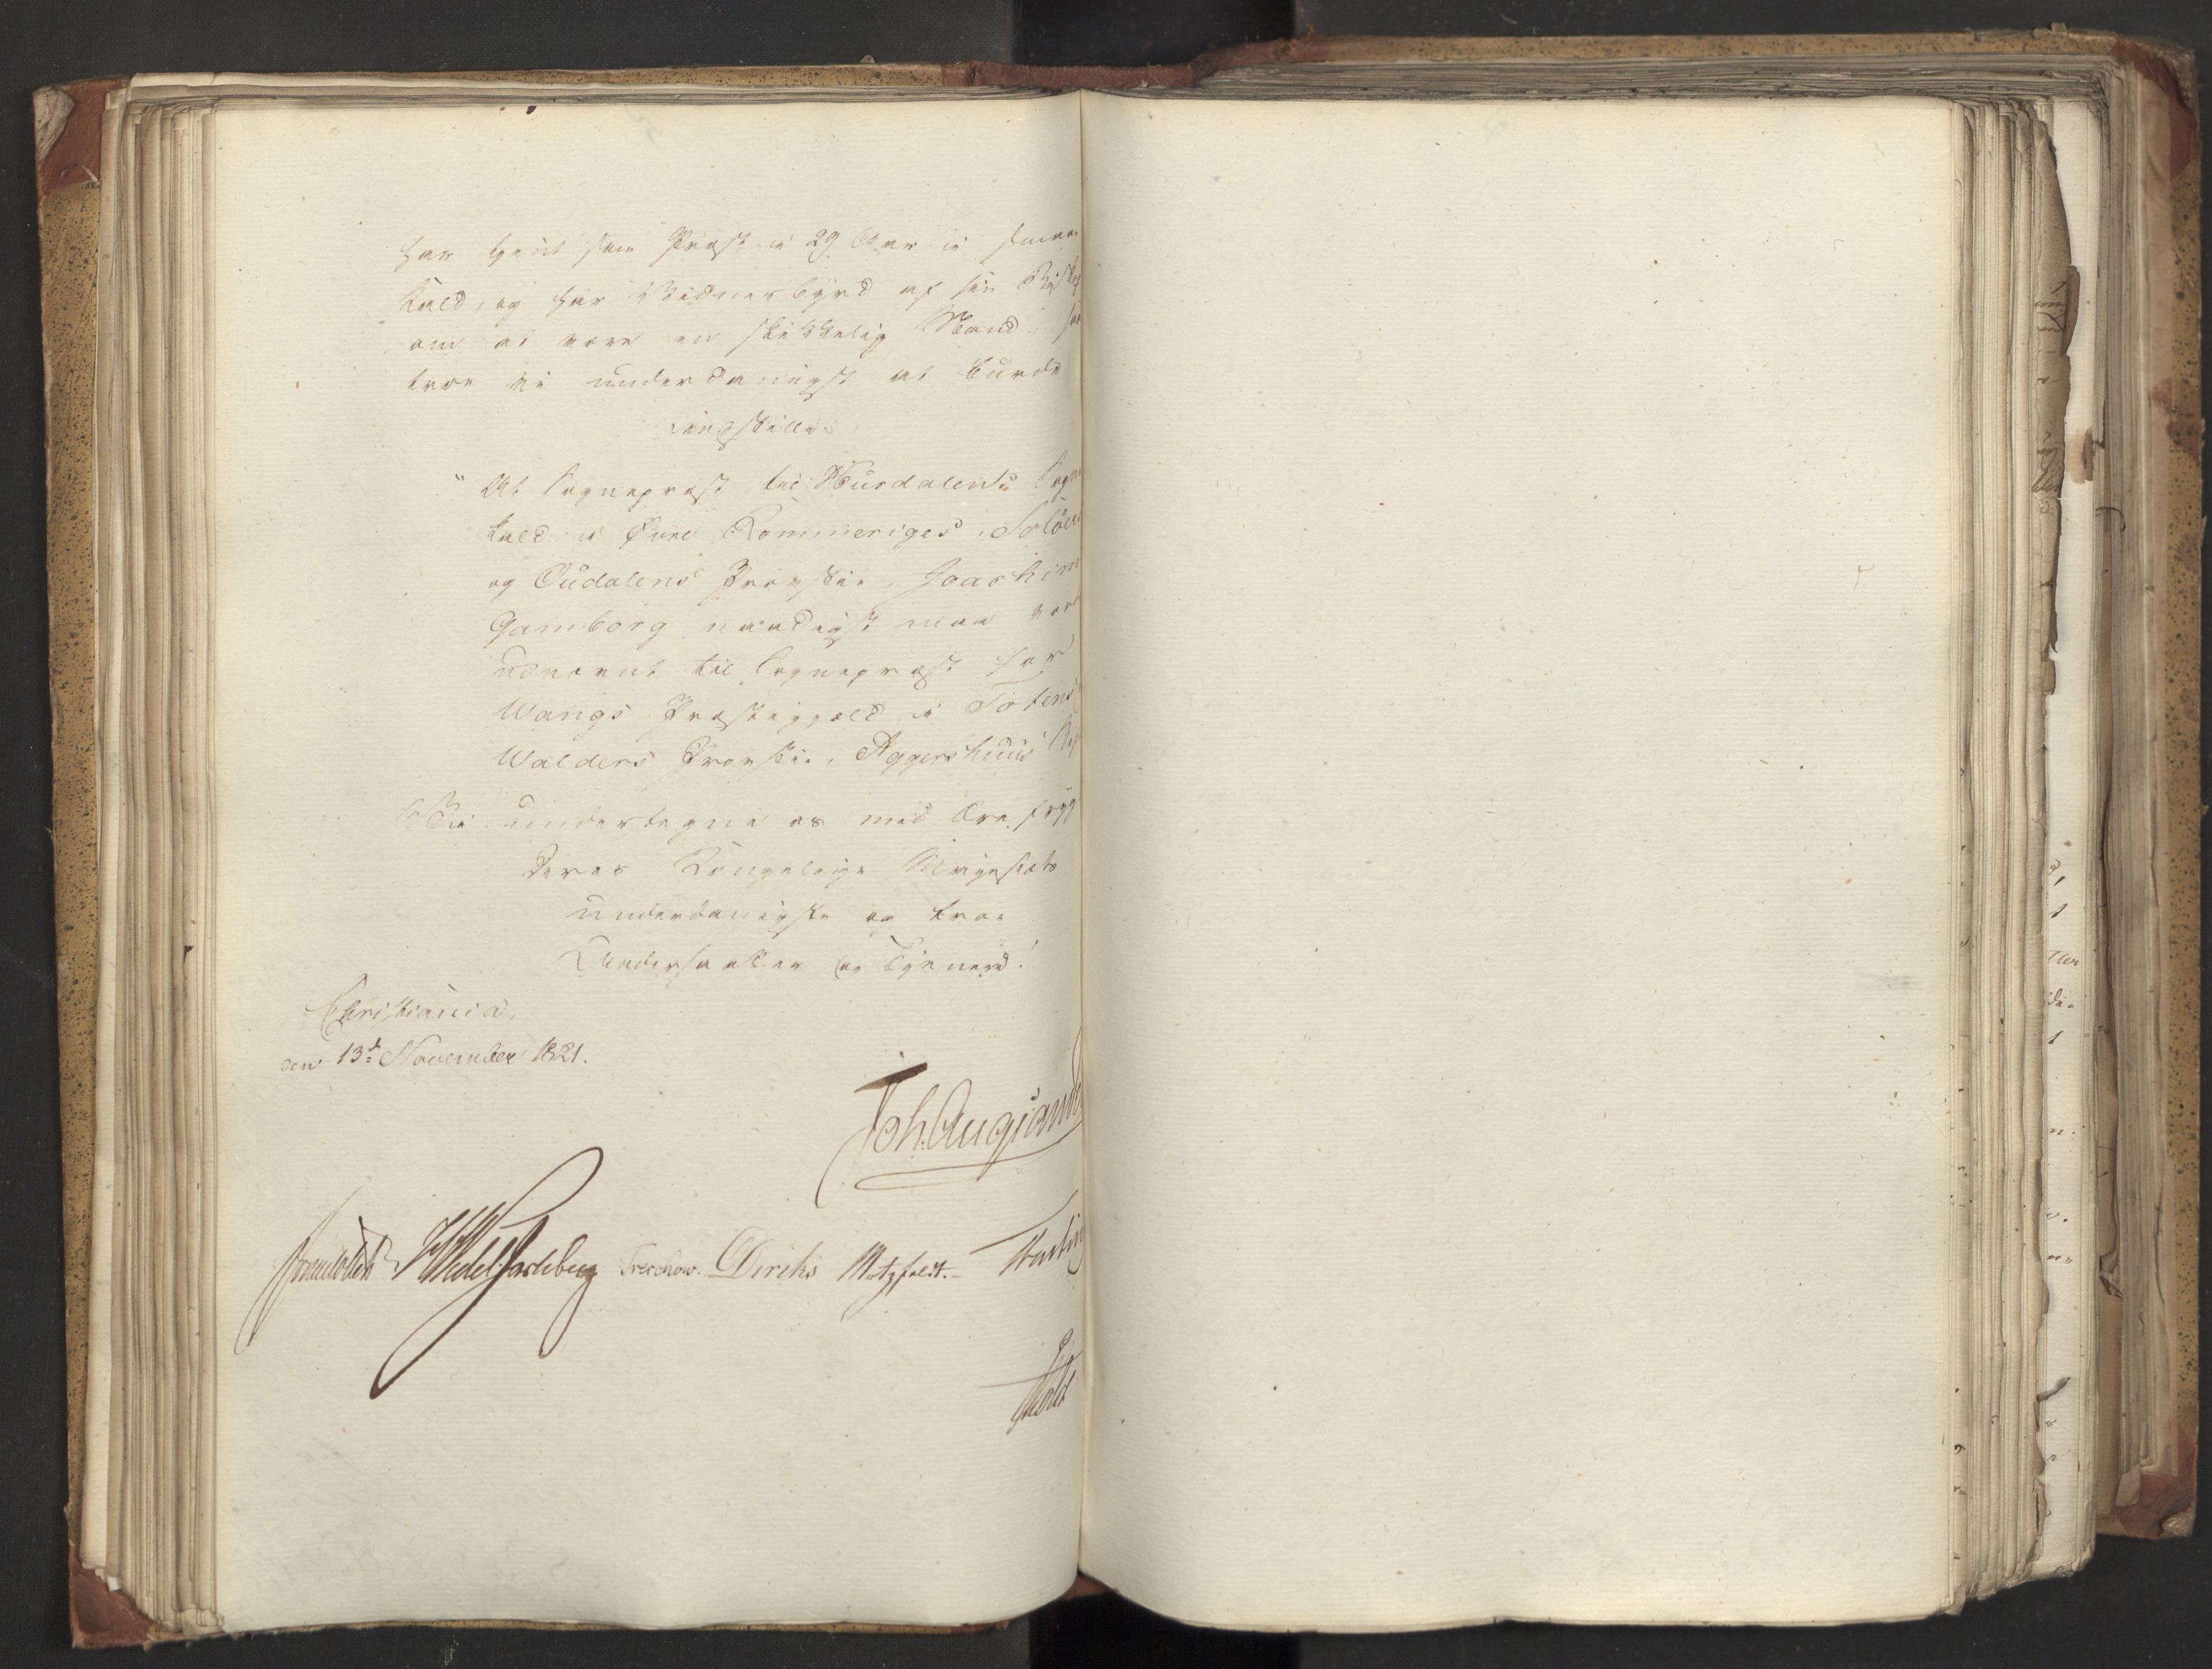 har tjent som Præst i 29 Aar i samme
Kald, og har Vidnesbyrd af sin Biskop
om at være en skikkelig Mand, saa
troe vi underdanigst at burde
indstille:
"At Sogneprest til Hurdalens Sogne
kald i Øvre Rommeriges, Soløer
og Oudalens Provstie, Joachim
Gamborg naadigst maa være
udnævnt til Sogneprest for
Wangs Præstegjeld i Totens
Walders Provstie, Aggershuus Stift
Vi undertegne os med Ærefrygt
Deres Kongelige Majestæts
underdanigste og troe
Undersaatter og Tjenere!
Christiania,
den 13de November 1821.
Joh. Aug. Sandels
Sommerhielm HWedel Jarlsberg Treschow. Diriks Motzfeldt. Fasting
Holst